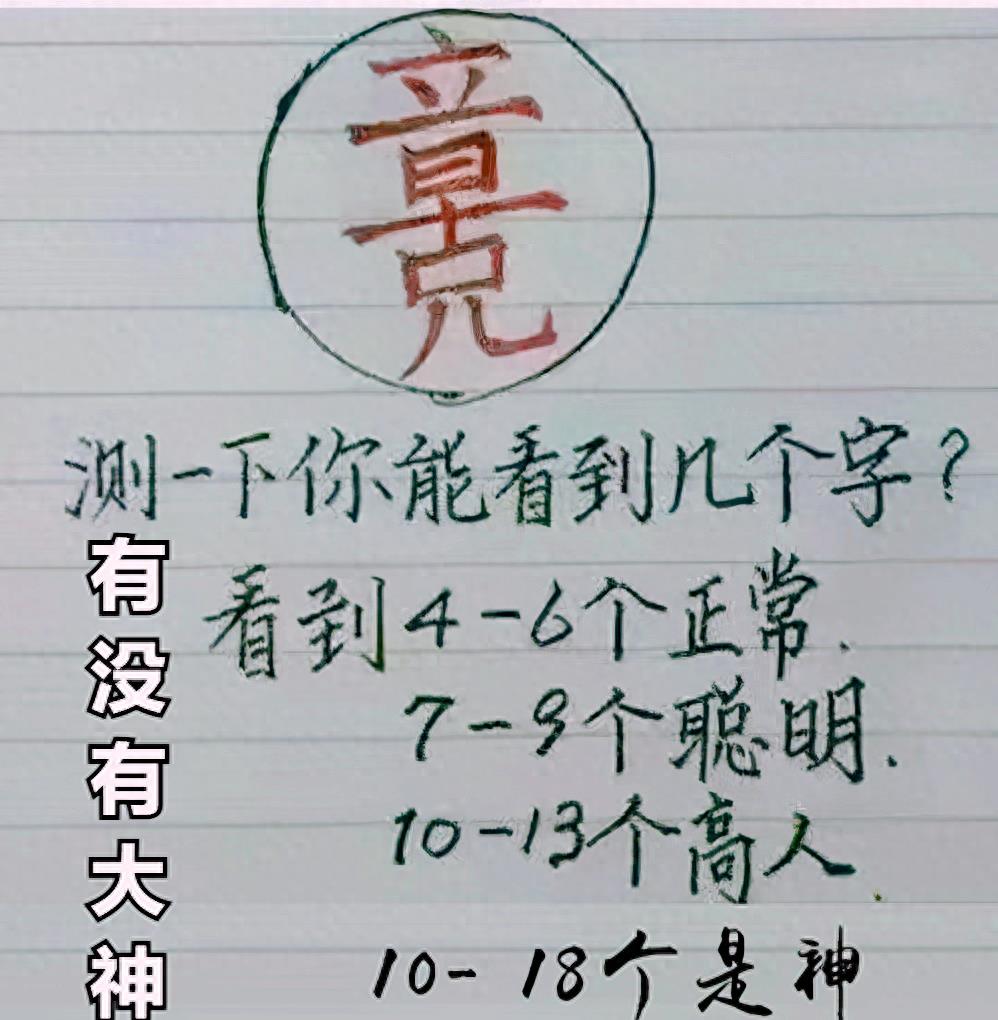 测一下你能看到几个字?
看到4-6个正常.
7-9个聪明.
10-13个高人.
10-18个是神
有没有大神